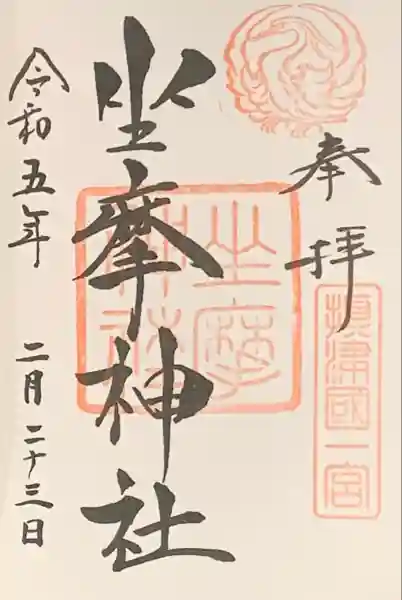 奉拝
攝津國一宮
坐摩神社
坐摩神社
令和五年
二月二十三日